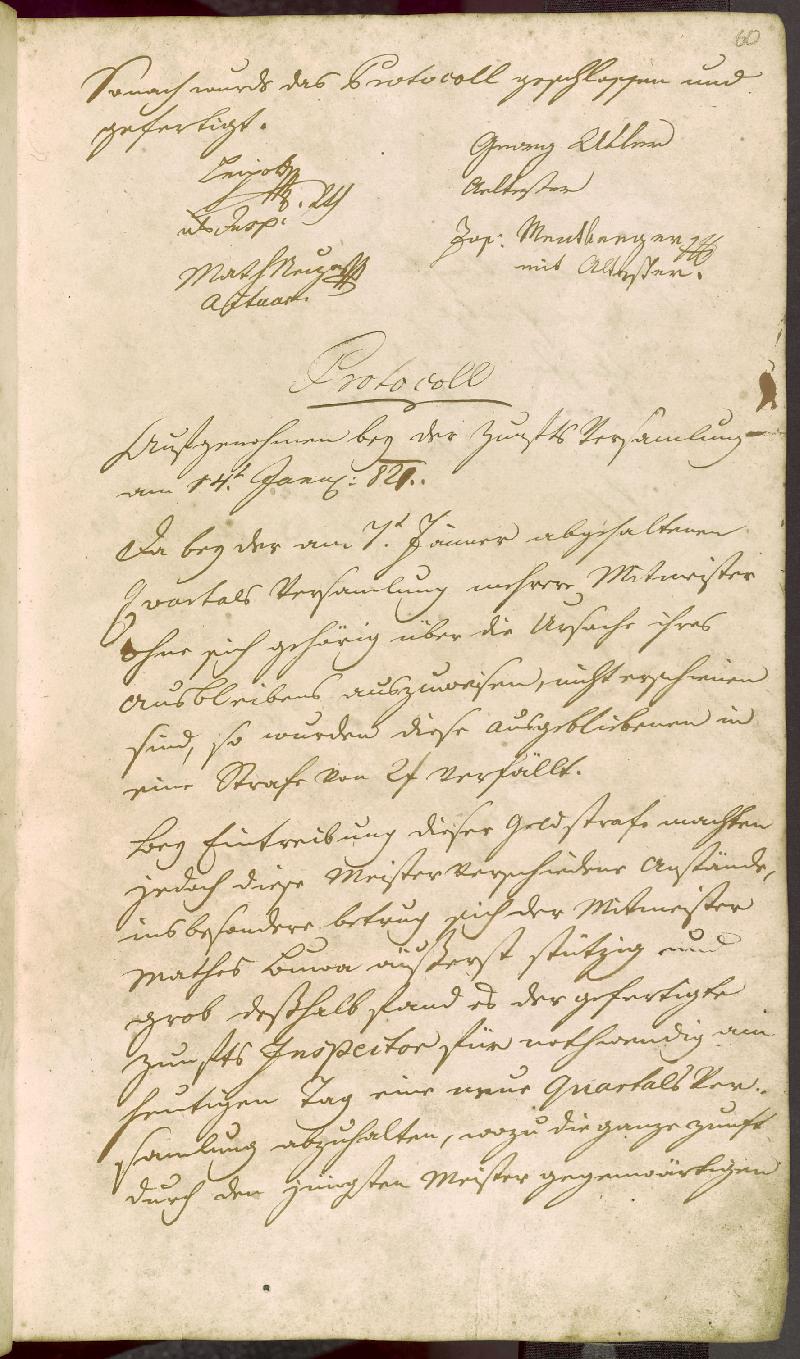 60
Sonach wurde das Protocoll geschlossen und
gefertigt.
Georg Adler
Aeltester
als Insp:
Jos: Mentberger
mit Altester.
Math
Actuar.
Protocoll
Aufgenohmen bey der Zunfts Versamlung
am 14t Janu: 821.
Da bey der am 7t Jänner abgehaltenen
Quartals Versamlung mehrere Mitmeister
ohne sich gehörig über die Ursache ihres
Ausbleibens auszuweisen, nicht erschienen
sind, so wurden diese Ausgebliebenen in
eine Strafe von 2f verfällt.
Bey Eintreibung dieser Geldstrafe machten
jedoch diese Meister verschiedene Anstände,
insbesondere betrug sich der Mitmeister
Mathes Buwa äußerst stützig und
grob deßhalb fand es der gefertigte
Zunfts Inspector für nothwendig am
heutigen Tag eine neue Quartals Ver-
samlung abzuhalten, wozu die ganze Zunft
durch den jüngsten Meister gegenwärtigen